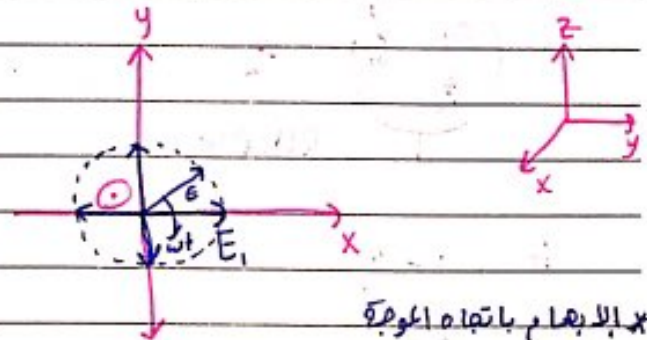 y
z
y
x
E
ωt
E₁
x
* الابهام باتجاه الموجة